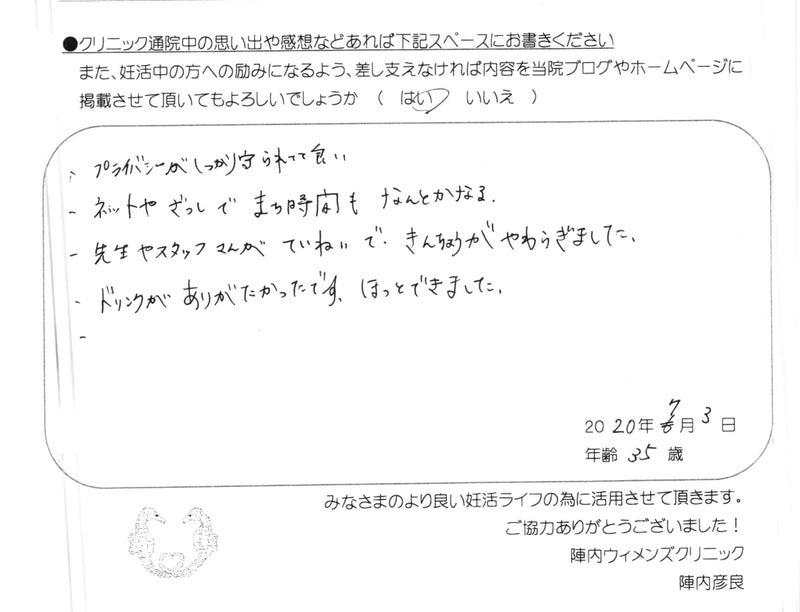 ●クリニック通院中の思い出や感想などあれば下記スペースにお書きください
また、妊活中の方への励みになるよう、差し支えなければ内容を当院ブログやホームページに
掲載させて頂いてもよろしいでしょうか （ はい　いいえ ）
- プライバシーがしっかり守られてて良い
- ネットやざっしでまち時間もなんとかなる.
- 先生やスタッフさんがていねいで. きんちょうがやわらぎました.
- ドリンクがありがたかったです. ほっとできました.
-
2020年7月3日
年齢 35 歳
みなさまのより良い妊活ライフの為に活用させて頂きます。
ご協力ありがとうございました！
陣内ウィメンズクリニック
陣内彦良